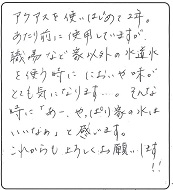 アクアスを使いはじめて2年。
あたり前に使用していますが、
職場など家以外の水道水
を使う時に においや味が
とても気になります…。そんな
時に「あー、やっぱり家の水は
いいなぁ」と感います。
これからも よろしくお願いします
!!